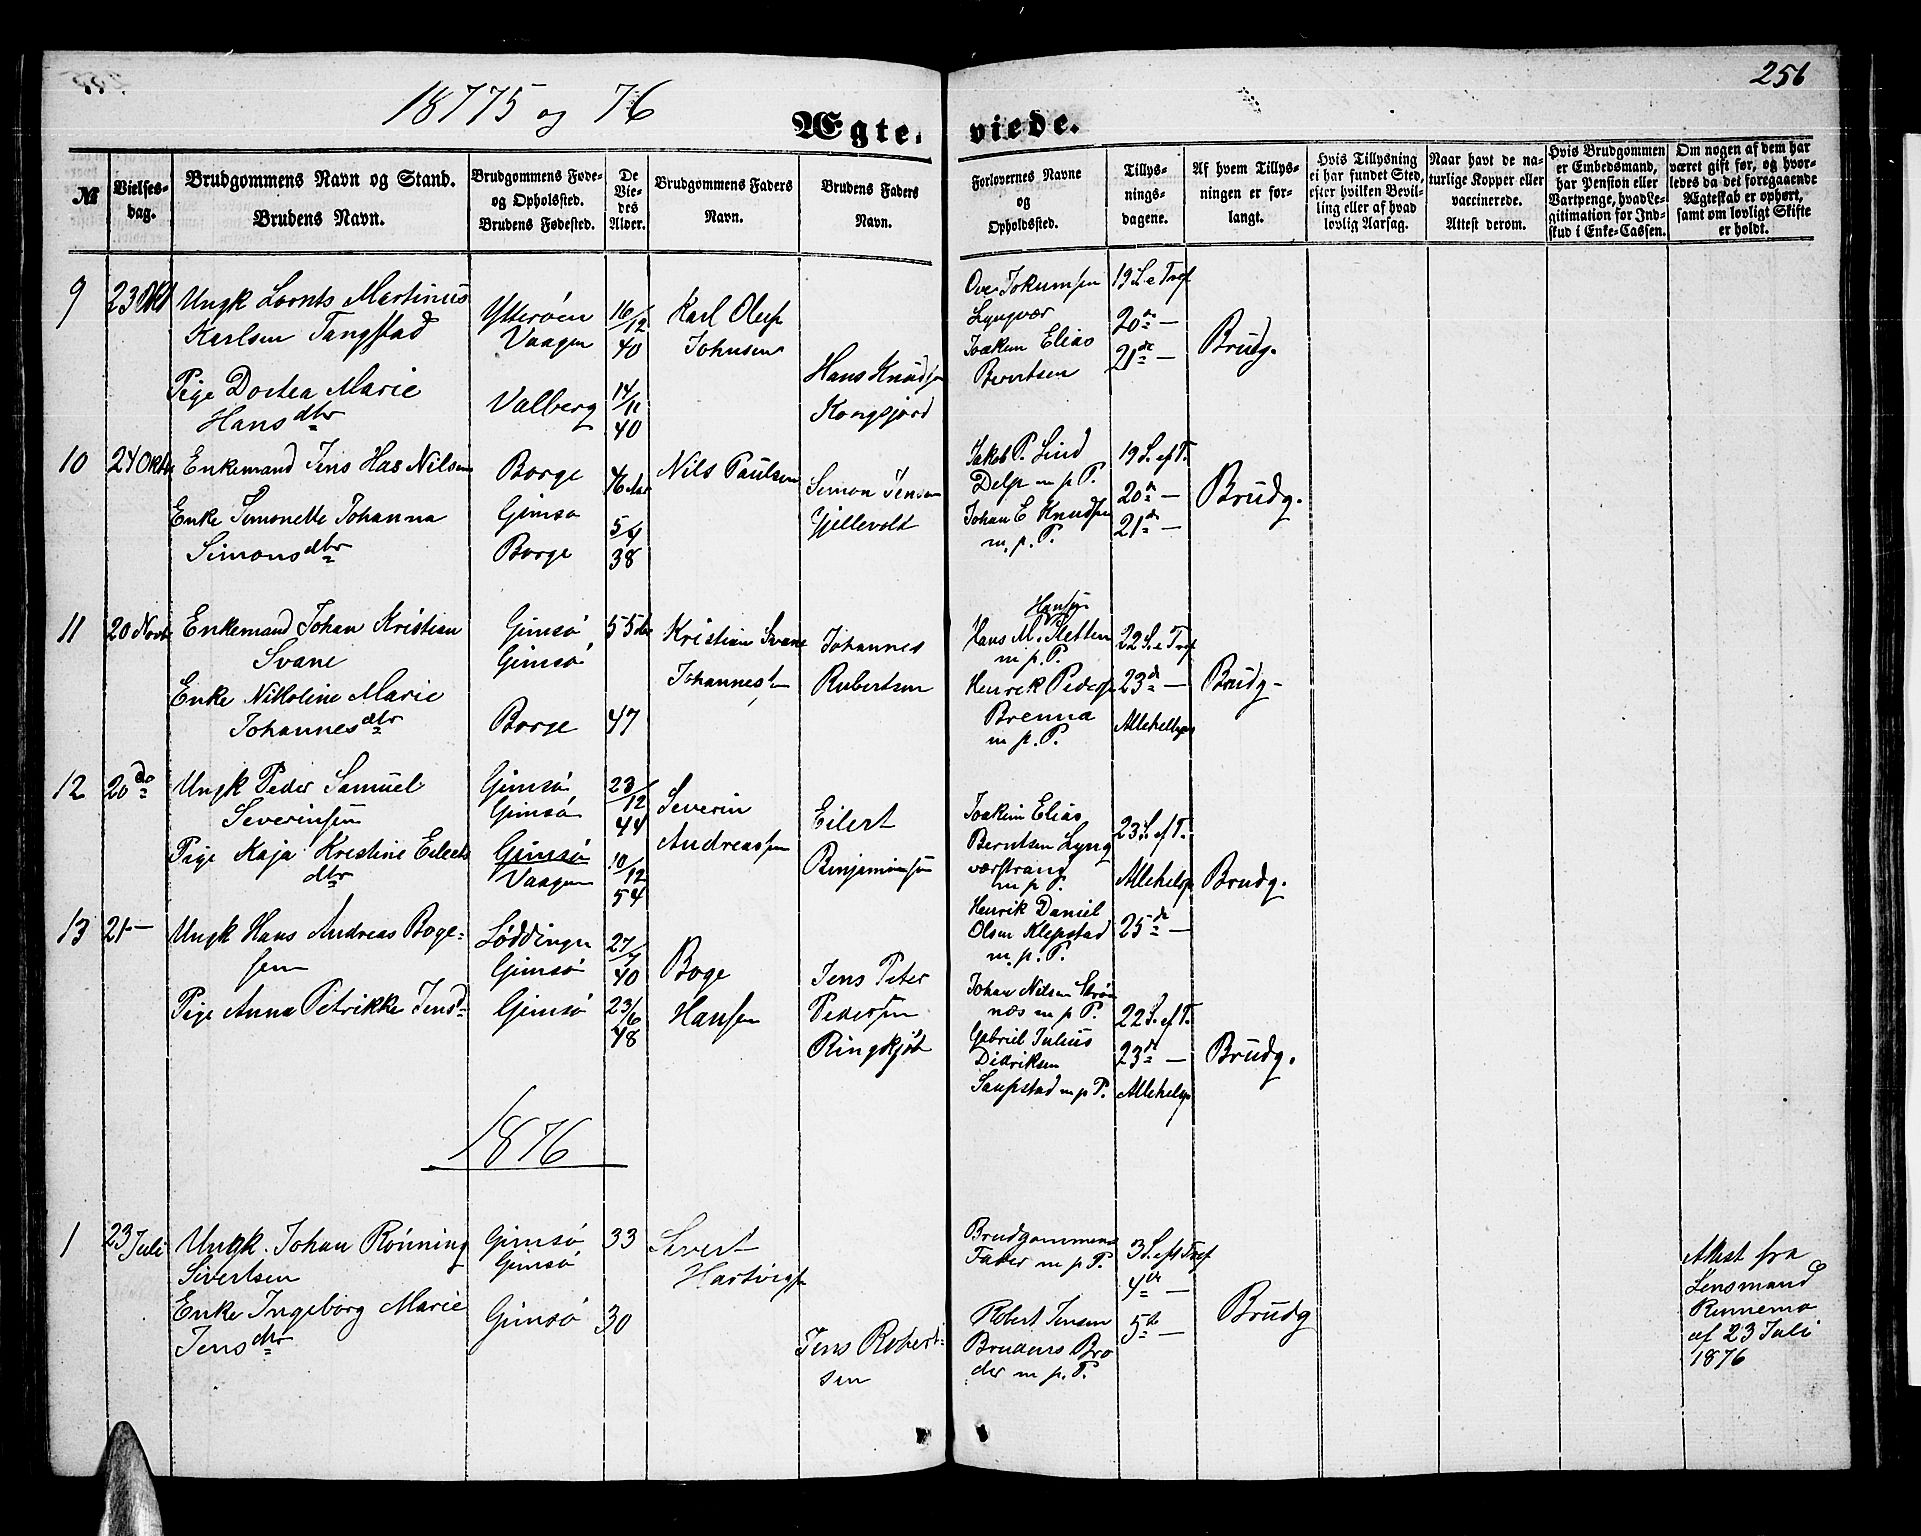 256
18775 og 76
Ægte- viede.
№
Vielses-
dag.
Brudgommens Navn og Stand.
Brudens Navn.
Brudgommens Føde-
og Opholdssted.
Brudens Fødested.
De
Vie-
des
Alder.
Brudgommens Faders
Navn.
Brudens Faders
Navn.
Forlovernes Navne
og
Opholdssted.
Tillys-
nings-
dagene.
Af hvem Tillys-
ningen er for-
langt.
Hvis Tillysning
ei har fundet Sted,
efter hvilken Bevil-
ling eller af hvad
lovlig Aarsag.
Naar havt de na-
turlige Kopper eller
vaccinerede.
Attest derom.
Hvis Brudgommen
er Embedsmand,
har Pension eller
Vartpenge, hvad Le-
gitimation for Ind-
skud i Enke-Cassen.
Om nogen af dem har
været gift før, og hvor-
ledes da det foregaaende
Ægteskab er ophørt,
samt om lovligt Skifte
er holdt.
9
23 Okt
Ungk Lornts Martinus
Karlsen Tangstad
Pige Dortea Marie
Hansdtr
Ytterøen
Vaagen
Valberg
16/12
40
14/11
40
Karl Olup
Johnsen
Hans Knudsen
Kongsjord
Ove Jokumsen
Lyngvær
Joakim Elias
Berntsen
19 S. e Tref
20de —
21de —
Brudg.
10
24 Oktr
Enkemand Jens Has Nilsen
Enke Simonette Johanna
Simonsdtr
Borge
Gimsø
Borge
46 Aar
5/4
38
Nils Paulsen
Simon Jensen
Gjillevold
Jakob P. Lind
Delp m p P.
Johan E Knudsen
m. p. P.
19 S. ef T.
20de —
21de —
Brudg.
11
20 Novbr
Enkemand Johan Kristian
Svane
Enke Nikoline Marie
Johannesdtr
Gimsø
Gimsø
Borge
55 Aar
47
Kristian Svane
Johannes
Rubertsen
Hansen
Hans M. Sletten
m p. P.
Henrik Peders
Brenna
m p. P.
22 S. e Tref
23de —
Allehelgen
Brudg-
12
20de
Ungk Peder Samuel
Severinsen
Pige Kaja Kristine Eilerts
dtr
Gimsø
Gimsø
Gimsø
Vaagen
23/12
44
10/12
54
Severin
Andreassen
Eilert
Binjaminsen
Joakim Elias
Berntsen Lyng
værstrang
m p P.
Henrik Daniel
Olsen Klepstad
m. p. P.
23 S. ef T.
Allehelgn
25de —
Brudg.
13
21 —
Ungk Hans Andreas Boge-
sen
Pige Anna Petrikke Jensd
Løddingn
Gimsø
Gimsø
27/7
40
23/6
48
Boge
Hansen
Jens Peter
Pedersen
Ringskjøt
Johan Nilsen Strøm
næs m p P.
Gabriel Julius
Didriksen
Saupstad m p P.
22 S. ef T.
23de —
Allehelgn
Brudg.
1876
1
23 Juli
Ungk. Johan Rønning
Sivertsen
Enke Ingeborg Marie
Jensdtr
Gimsø
Gimsø
Gimsø
33
30
Sivert
Hartvigsen
Jens Robert-
sen
Brudgommens
Fader m p P.
Robert Jensen
Brudens Bro
der m p. P.
3 S. eft Tref
4de —
5te —
Brudg
Attest fra
Lensmand
Rinnemo
af 23 Juli
1876